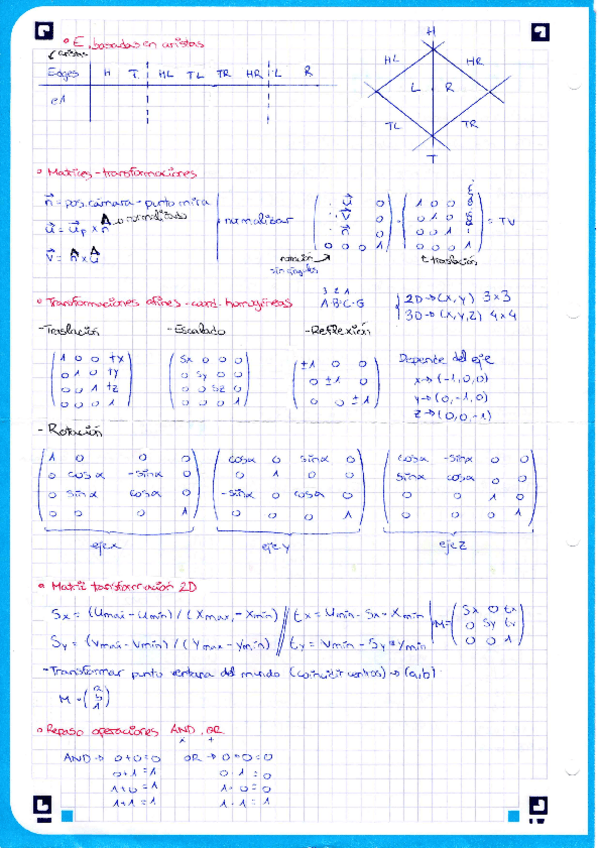 • E. basadas en aristas
aristas
Edges H T HL TL TR HR L R
e1
H
HL HR
L R
TL TR
T
• Matrices - transformaciones
n = pos. cámara - punto mira
u = up x n normalizado
v = n x u
normalizar
u 0
v 0
n 0
0 0 0 1
1 0 0
0 1 0
0 0 1
0 0 0 1
= TV
rotación
sin ángulos
t traslación
• Transformaciones afines - coord. homogéneas
3 2 1
A·B·C·G
2D → (x, y) 3x3
3D → (x, y, z) 4x4
- Traslación - Escalado - Reflexión
1 0 0 tx
0 1 0 ty
0 0 1 tz
0 0 0 1
Sx 0 0 0
0 Sy 0 0
0 0 Sz 0
0 0 0 1
±1 0 0
0 ±1 0
0 0 ±1
Depende del eje
x → (-1,0,0)
y → (0,-1,0)
z → (0,0,-1)
- Rotación
1 0 0 0
0 cosα -sinα 0
0 sinα cosα 0
0 0 0 1
eje x
cosα 0 sinα 0
0 1 0 0
-sinα 0 cosα 0
0 0 0 1
eje y
cosα -sinα 0 0
sinα cosα 0 0
0 0 1 0
0 0 0 1
eje z
• Matriz transformación 2D
Sx = (Umax - Umin) / (Xmax - Xmin) // tx = Umin - Sx · Xmin
Sy = (Vmax - Vmin) / (Ymax - Ymin) // ty = Vmin - Sy * Ymin
M =
Sx 0 tx
0 Sy ty
0 0 1
- Transformar punto ventana del mundo (coincidir centros) → (a,b)
M · (a b 1)
• Repaso operaciones AND, OR
x +
AND → 0+0=0 OR → 0·0=0
0+1=1 0·1=0
1+0=1 1·0=0
1+1=1 1·1=1